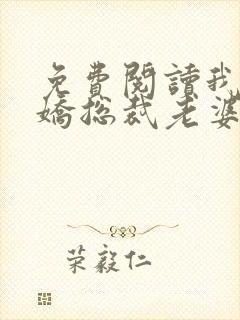 免費閱讀我
嬌總裁老婆
荣毅仁